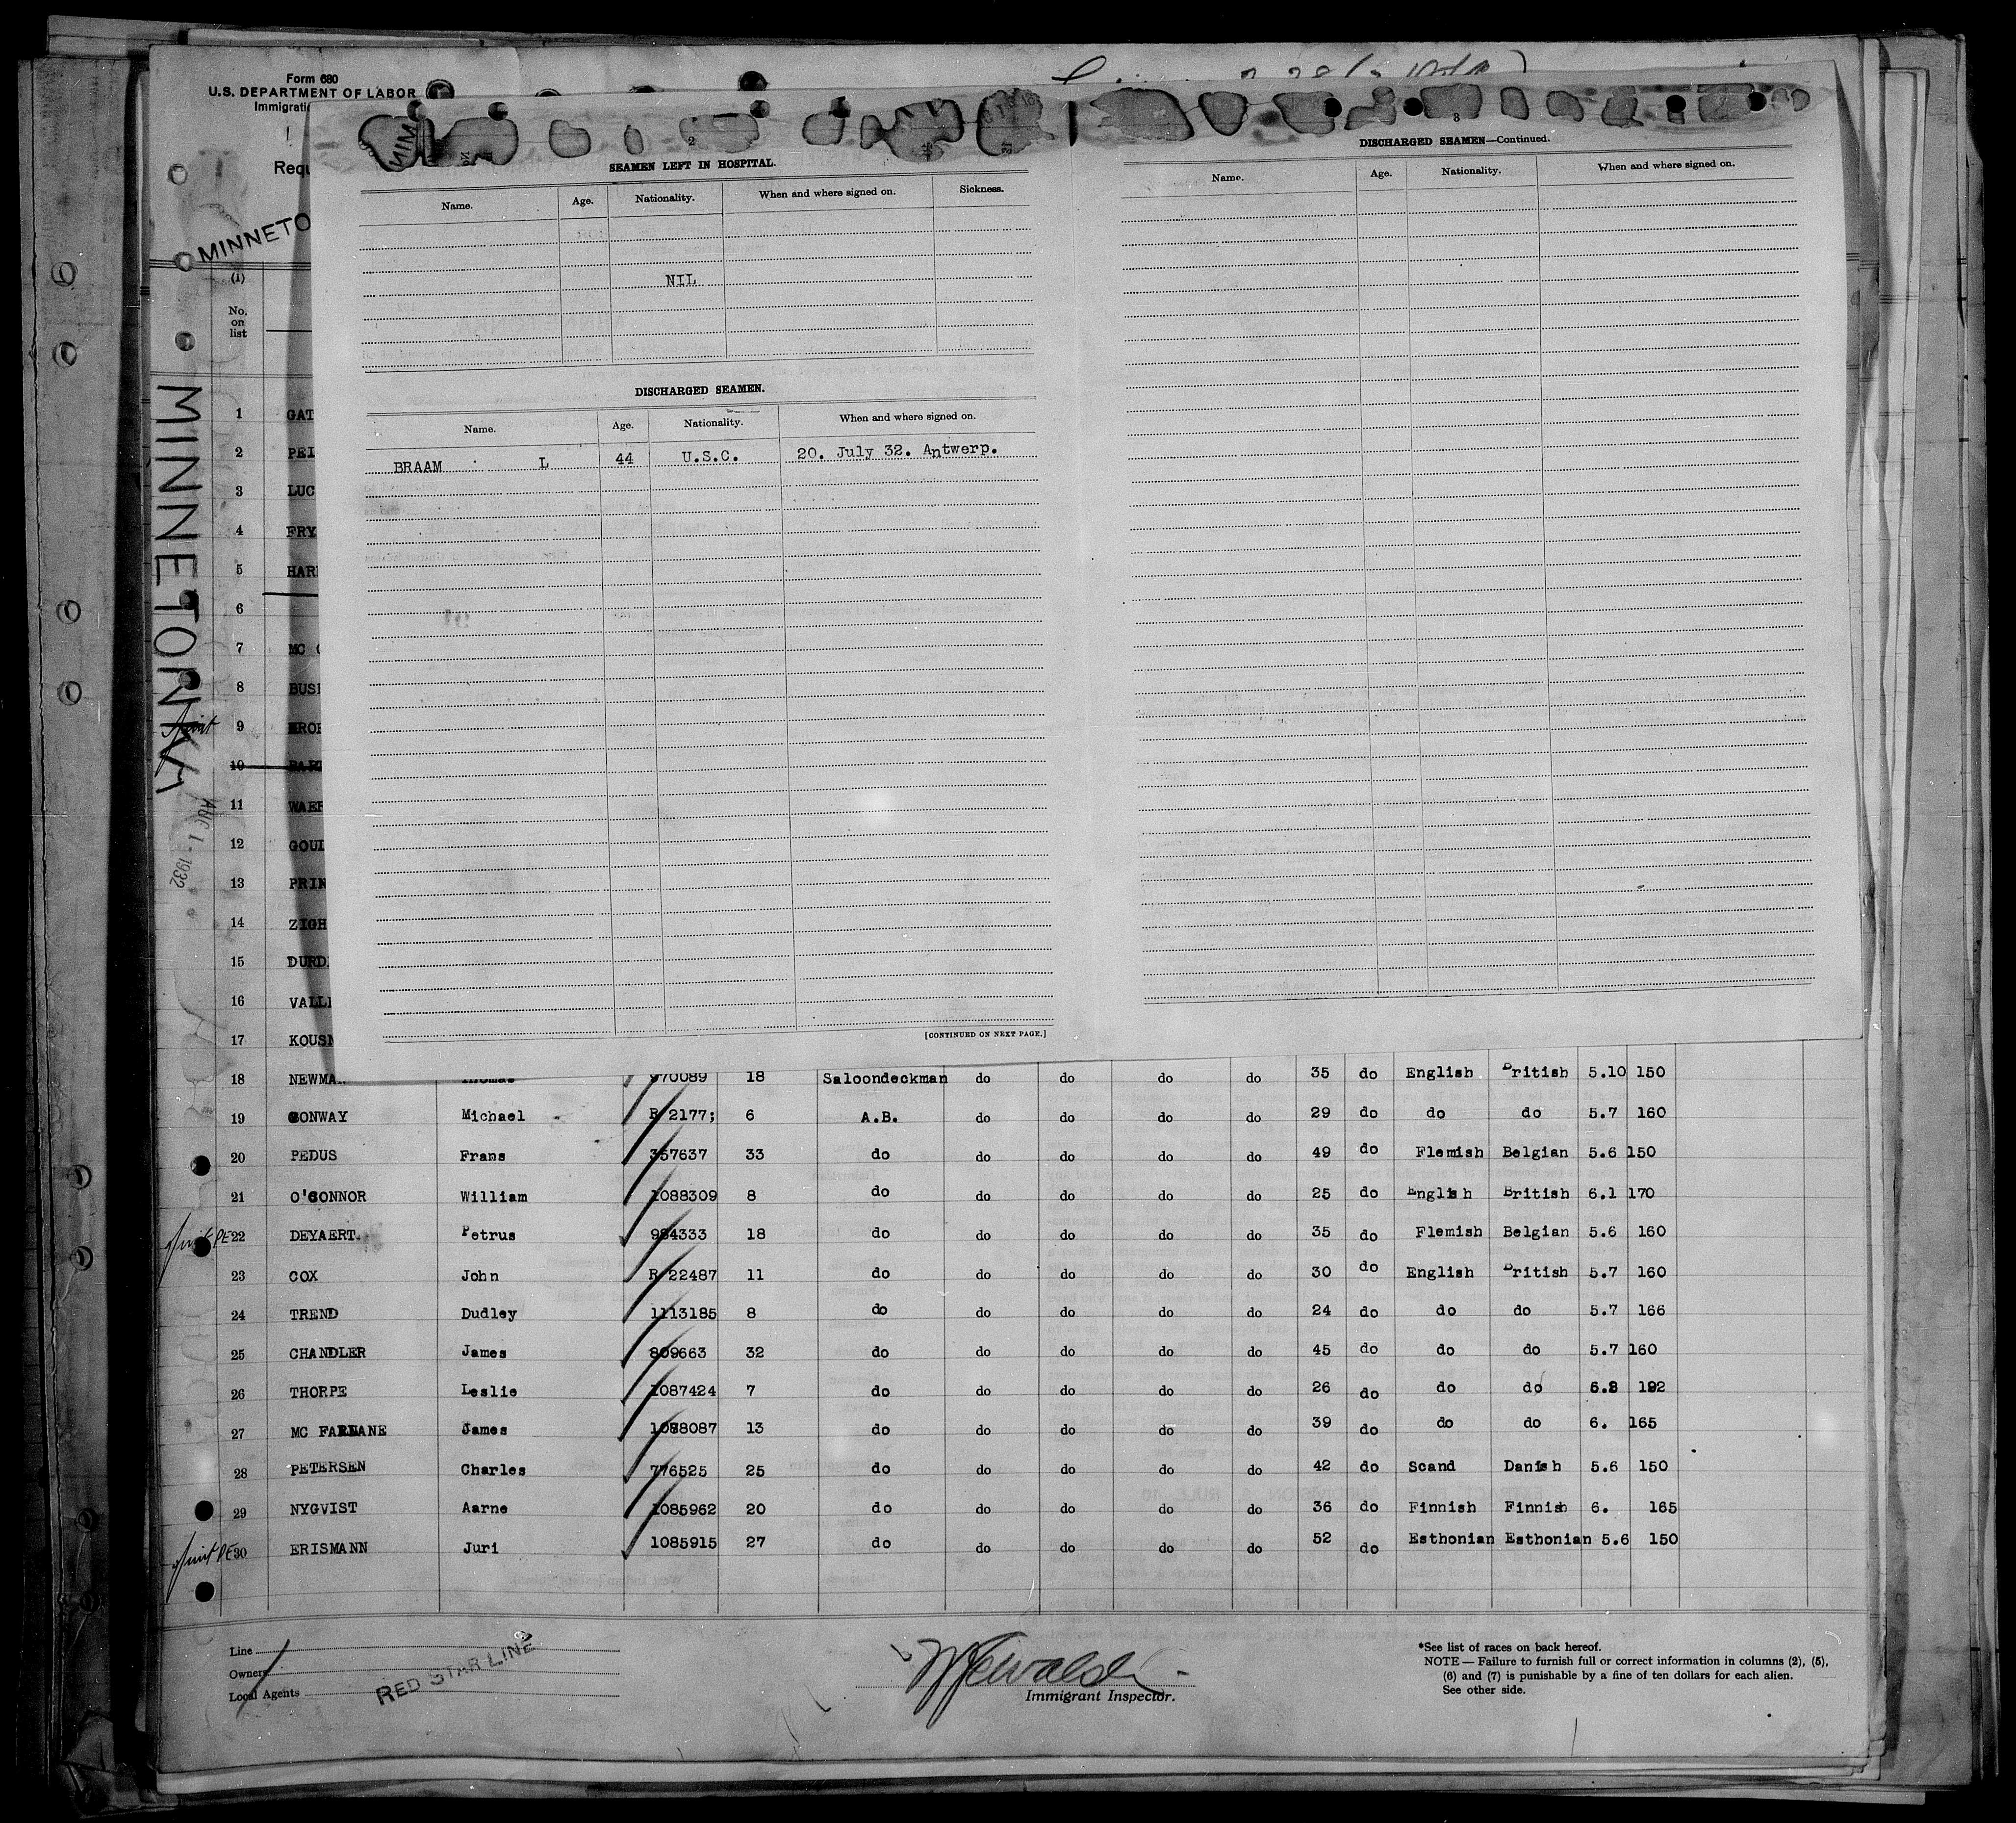 Form 680
U.S. DEPARTMENT OF LABOR
MINNETO
(1)
No.
on
list
MINNETONKA
AUG 1 - 1932
2
SEAMEN LEFT IN HOSPITAL.
Name. Age. Nationality. When and where signed on. Sickness.
NIL
DISCHARGED SEAMEN.
Name. Age. Nationality. When and where signed on.
BRAAM L 44 U.S.C. 20. July 32. Antwerp.
[CONTINUED ON NEXT PAGE.]
3
DISCHARGED SEAMEN—Continued.
Name. Age. Nationality. When and where signed on.
1 GAT
2 PEI
3 LUC
4 FRY
5 HAR
6
7 MC
8 BUS
9
10
11 WAER
12 GOUL
13 PRIN
14 ZIGH
15 DURD
16 VALL
17 KOUSN
18 NEWMA Thomas 970089 18 Saloondeckman do do do do 35 do English British 5.10 150
19 CONWAY Michael R 2177; 6 A.B. do do do do 29 do do do 5.7 160
20 PEDUS Frans 357637 33 do do do do do 49 do Flemish Belgian 5.6 150
21 O'CONNOR William 1088309 8 do do do do do 25 do English British 6.1 170
22 DEYAERT. Petrus 984333 18 do do do do do 35 do Flemish Belgian 5.6 160
23 COX John R 22487 11 do do do do do 30 do English British 5.7 160
24 TREND Dudley 1113185 8 do do do do do 24 do do do 5.7 166
25 CHANDLER James 809663 32 do do do do do 45 do do do 5.7 160
26 THORPE Leslie 1087424 7 do do do do do 26 do do do 192
27 MC FARLANE James 1088087 13 do do do do do 39 do do do 6. 165
28 PETERSEN Charles 776525 25 do do do do do 42 do Scand Danish 5.6 150
29 NYGVIST Aarne 1085962 20 do do do do do 36 do Finnish Finnish 6. 165
30 ERISMANN Juri 1085915 27 do do do do do 52 do Esthonian Esthonian 5.6 150
Line
Owners
Local Agents
RED STAR LINE
Immigrant Inspector.
*See list of races on back hereof.
NOTE — Failure to furnish full or correct information in columns (2), (5),
(6) and (7) is punishable by a fine of ten dollars for each alien.
See other side.